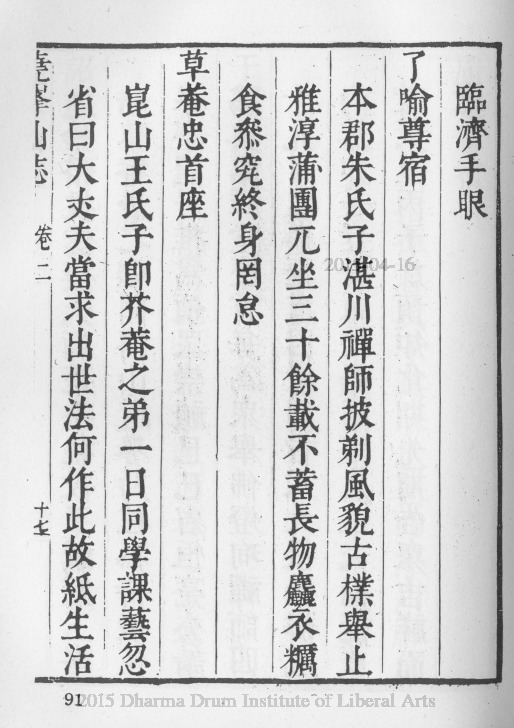 臨濟手眼
了喻尊宿
本郡朱氏子湛川禪師披剃風貌古樸舉止
雅淳蒲團兀坐三十餘載不蓄長物麤衣糲
食叅究終身罔怠
草菴忠首座
崑山王氏子卽芥菴之弟一日同學課藝忽
省曰大丈夫當求出世法何作此故紙生活
堯峯山志 卷二 十七
91
2015 Dharma Drum Institute of Liberal Arts